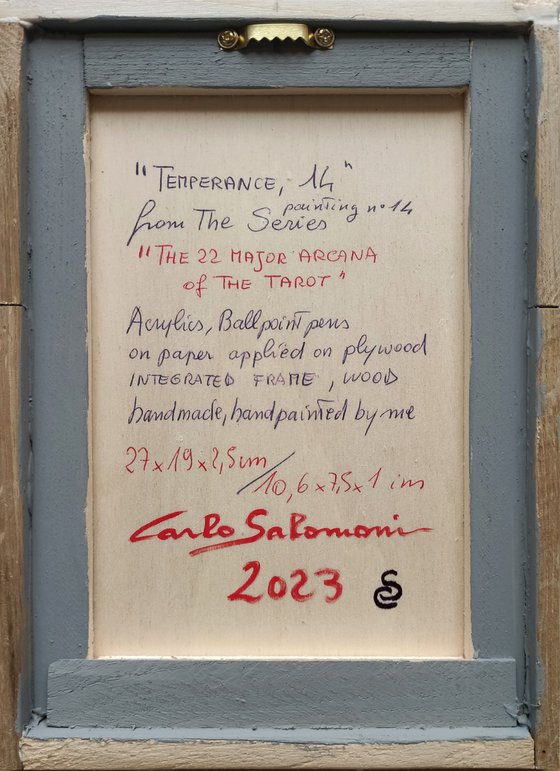 "TEMPERANCE, 14"
painting n° 14
from The Series
"THE 22 MAJOR ARCANA
of THE TAROT"
Acrylics, Ballpoint pens
on paper applied on plywood
INTEGRATED FRAME, WOOD
handmade, handpainted by me
27x19x2,5 cm / 10,6x7,5x1 in
Carlo Salomoni
2023